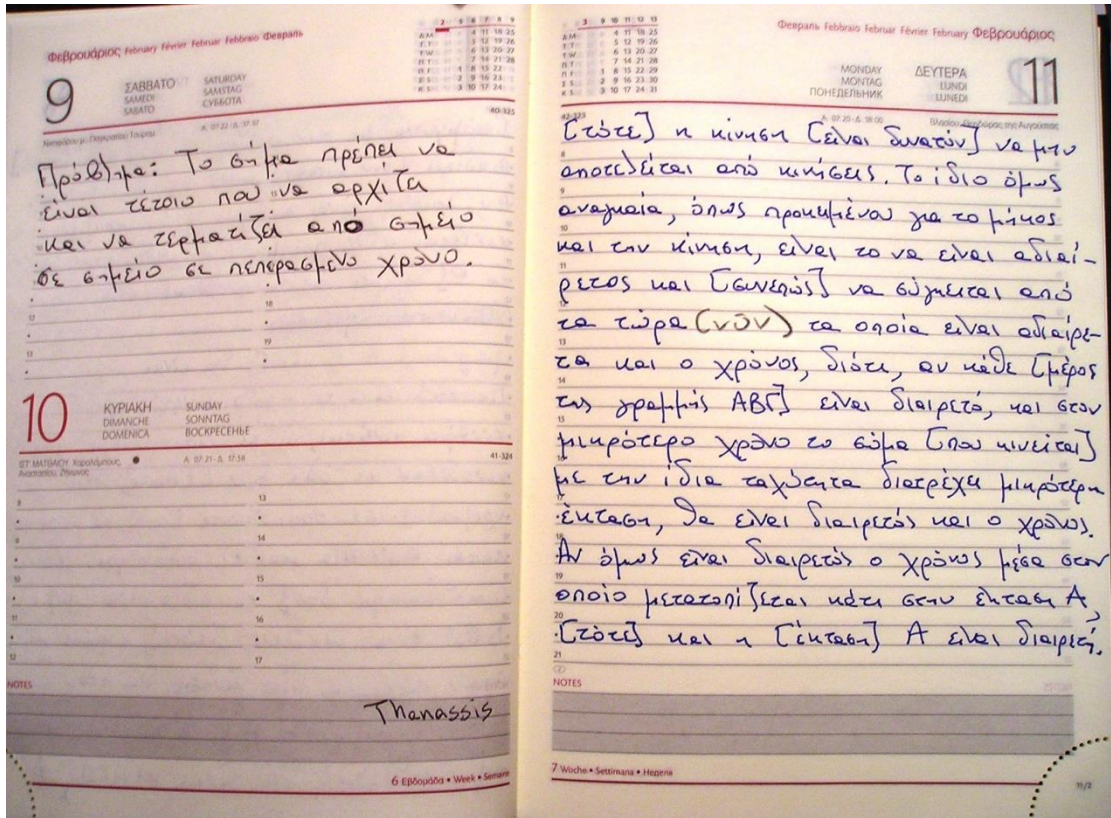 Φεβρουάριος February Février Februar Febbraio Февраль
9
ΣΑΒΒΑΤΟ SATURDAY
SAMEDI SAMSTAG
SABATO СУББОТА
Λ. 07:22 - Δ. 17:57
40-325
Πρόβλημα: Το σήμα πρέπει να
είναι τέτοιο που να αρχίζει
και να τερματίζει από σημείο
σε σημείο σε πεπερασμένο χρόνο.
10
ΚΥΡΙΑΚΗ SUNDAY
DIMANCHE SONNTAG
DOMENICA ВОСКРЕСЕНЬЕ
ΙΣΤ' ΜΑΤΘΑΙΟΥ Χαραλάμπους,
Αναστασίου, Ζήνωνος
Λ. 07:21 - Δ. 17:58
41-324
NOTES
Thanassis
6 Εβδομάδα • Week • Semaine
Февраль Febbraio Februar Février February Φεβρουάριος
11
MONDAY ΔΕΥΤΕΡΑ
MONTAG LUNDI
ПОНЕДЕЛЬНИК LUNEDI
42-323
Λ. 07:20 - Δ. 18:00
Βλασίου, Θεοδώρας της Αυγούστας
[τότε] η κίνηση [είναι δυνατόν] να μην
αποτελείται από κινήσεις. Το ίδιο όμως
αναγκαία, όπως προκημένου για το μήκος
και την κίνηση, είναι το να είναι αδιαί-
ρετος και [συνεπώς] να σύγκειται από
τα τώρα (νῦν) τα οποία είναι αδιαίρε-
τα και ο χρόνος, διότι, αν κάθε [μέρος
της γραμμής ΑΒΓ] είναι διαιρετό, και στον
μικρότερο χρόνο το σώμα [που κινείται]
με την ίδια ταχύτητα διατρέχει μικρότερη
έκταση, θα είναι διαιρετός και ο χρόνος.
Αν όμως είναι διαιρετός ο χρόνος μέσα στον
οποίο μετατοπίζεται κάτι στην έκταση Α,
[τότε] και η [έκταση] Α είναι διαιρετή.
NOTES
7 Woche • Settimana • Неделя
11/2